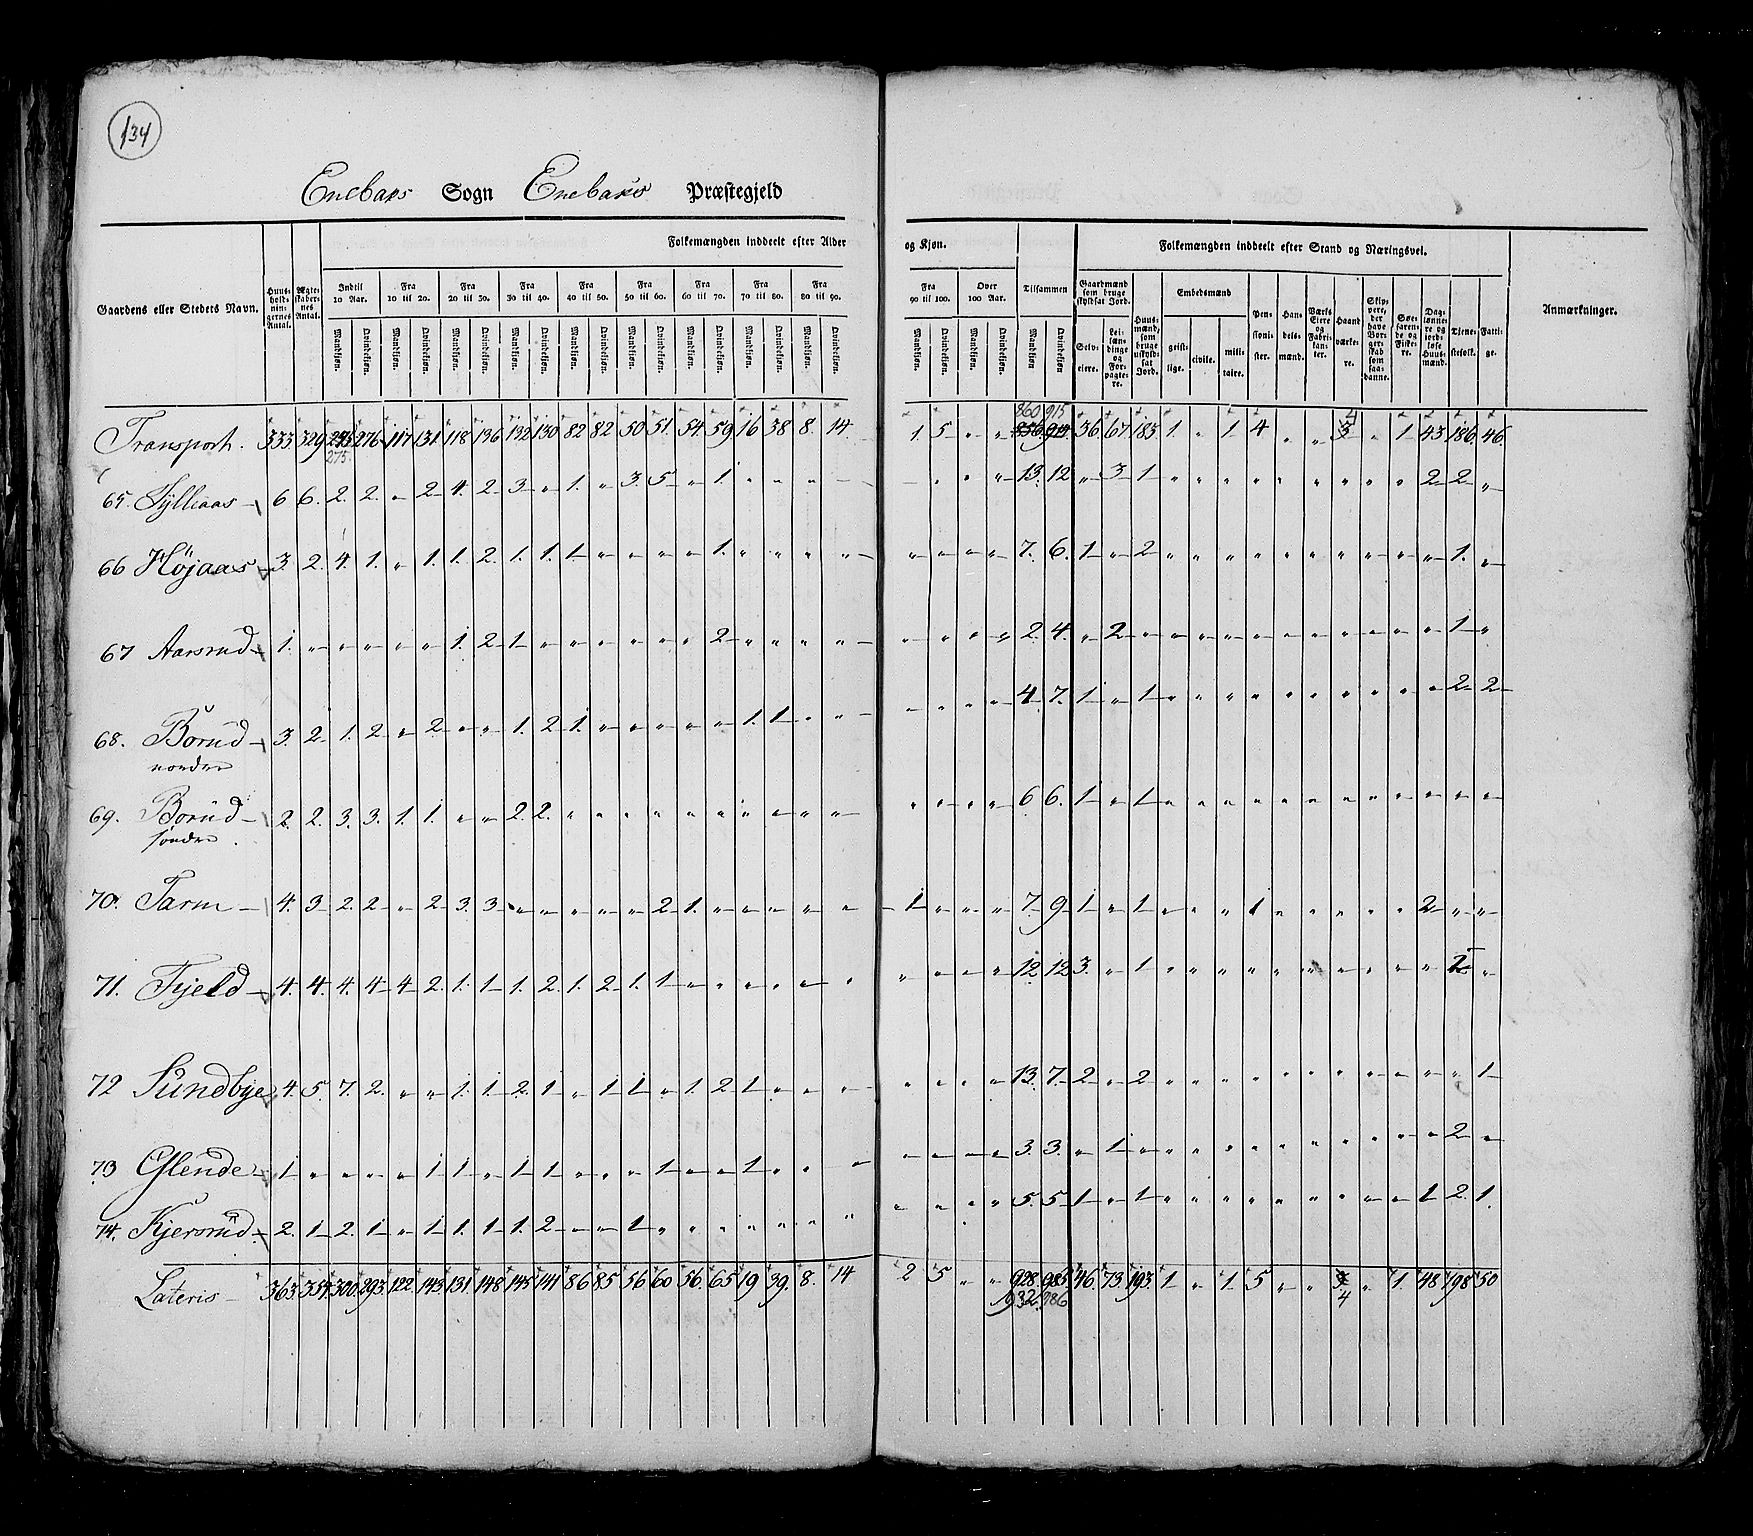 134
Enebaks Sogn Enebaks Præstegjeld
Folkemængden inddeelt efter Alder og Kjøn. Folkemængden inddeelt efter Stand og Næringsvei.
Gaardens eller Stedets Navn. Huus-holdnin-gernes Antal. Ægte-skaber-nes Antal. Indtil 10 Aar. Fra 10 til 20. Fra 20 til 30. Fra 30 til 40. Fra 40 til 50. Fra 50 til 60. Fra 60 til 70. Fra 70 til 80. Fra 80 til 90. Fra 90 til 100. Over 100 Aar. Tilsammen Gaardmænd som bruge skyldsat Jord. Embedsmænd Anmærkninger.
Mandkjøn. Qvindekjøn. Mandkjøn. Qvindekjøn. Mandkjøn. Qvindekjøn. Mandkjøn. Qvindekjøn. Mandkjøn. Qvindekjøn. Mandkjøn. Qvindekjøn. Mandkjøn. Qvindekjøn. Mandkjøn. Qvindekjøn. Mandkjøn. Qvindekjøn. Mandkjøn. Qvindekjøn. Mandkjøn. Qvindekjøn. Mandkjøn Qvindekjøn Selv-eiere. Lei-læn-dinge og For-pagte-re. Huus-mænd, som bruge uskyld-sat Jord. geist-lige. civile. mili-taire. Pen-sioni-ster. Han-dels-mænd. Værks Eiere og Fabri-kan-ter. Haand værke-re. Skip-pere, der have Bor-ger-skab som saa-danne. Søe-faren-de og Fiske-re. Dag-lønne-re og jord-løse Huus-mænd. Tjene-stefolk. Fatti-ge.
860 915 4
Transport. 333 329 276 117 131 118 136 132 130 82 82 50 51 54 59 16 38 8 14 1 5 „ „ 856 914 36 67 183 1 „ 1 4 „ „ 3 „ 1 43 186 46
275
65 Sylliaas 6 6 2 2 „ 2 4 2 3 „ 1 „ 3 5 „ 1 „ „ „ 13 12 „ 3 1 „ „ „ „ „ „ „ „ „ 2 2 „
66 Højaas 3 2 4 1 „ 1 1 2 1 1 1 „ „ „ „ 1 „ „ „ „ „ „ „ „ 7 6 1 „ 2 „ „ „ „ „ „ „ „ „ „ 1 „
67 Aarsrud 1 „ „ „ „ „ 1 2 1 „ „ „ „ „ „ 2 „ „ „ „ „ „ „ „ 2 4 „ 2 „ „ „ „ „ „ „ „ „ „ „ 1 „
68. Borud 3 2 1 2 „ 2 „ „ 1 2 1 „ „ „ „ „ 1 1 „ „ „ „ „ „ 4 7 1 „ 1 „ „ „ „ „ „ „ „ „ „ 2 2
nordre
69. Borud 2 2 3 3 1 1 „ „ 2 2 „ „ „ „ „ „ „ „ „ „ „ „ „ „ 6 6 1 „ 1 „ „ „ „ „ „ „ „ „ „ „ „
søndre
70. Tarm 4 3 2 2 „ 2 3 3 „ „ „ „ „ 2 1 „ „ „ „ „ 1 „ „ „ 7 9 1 „ 1 „ „ „ 1 „ „ „ „ „ 2 „ „
71. Fjeld 4 4 4 4 4 2 1 1 1 2 1 2 1 1 „ „ „ „ „ „ „ „ „ „ 12 12 3 „ 1 „ „ „ „ „ „ „ „ „ „ „
72 Sundbye 4 5 7 2 „ „ 1 1 2 1 „ 1 1 „ 1 2 1 „ „ „ „ „ „ „ 13 7 2 „ 2 „ „ „ „ „ „ „ „ „ „ „ 1
73 Glende 1 „ „ „ „ 1 1 „ 1 1 „ „ „ 1 „ „ 1 „ „ „ „ „ „ „ 3 3 „ 1 „ „ „ „ „ „ „ „ „ „ „ 2 „
74. Kjersrud 2 1 2 1 „ 1 1 1 1 2 „ „ 1 „ „ „ „ „ „ „ „ „ „ „ 5 5 1 „ 1 „ „ „ „ „ „ „ „ „ 1 2 1
Lateris 363 354 300 293 122 143 131 148 145 141 86 85 56 60 56 65 19 39 8 14 2 5 „ „ 928 985 46 73 193 1 „ 1 5 „ „ „ 1 48 198 50
932 986 4